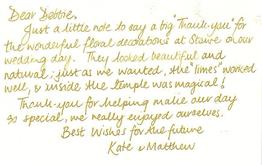 Dear Debbie,
Just a little note to say a big "Thank-you" for
the wonderful floral decorations at Stowe on our
wedding day. They looked beautiful and
natural; just as we wanted, the 'limes' worked
well, & inside the temple was magical!
Thank-you for helping make our day
so special, we really enjoyed ourselves.
Best Wishes for the future
Kate & Matthew